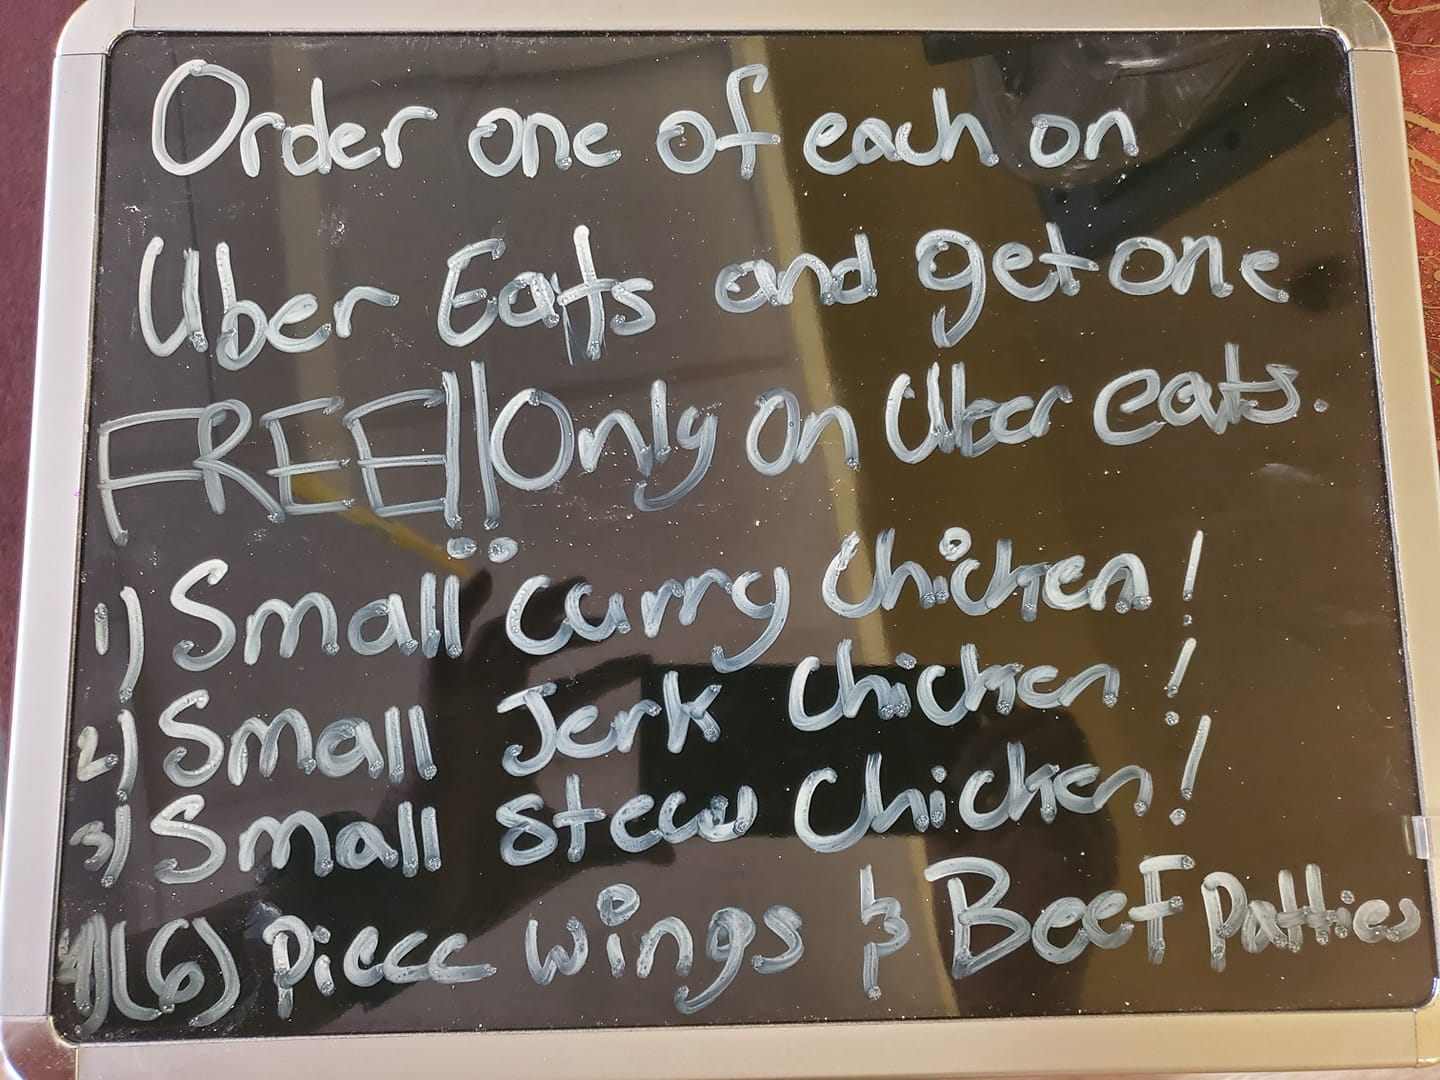 Order one of each on
Uber Eats and get one
FREE!! Only on Uber eats.
1) Small curry Chicken!
2) Small Jerk Chicken!
3) Small stew Chicken!
4) (6) Piece wings & Beef Patties